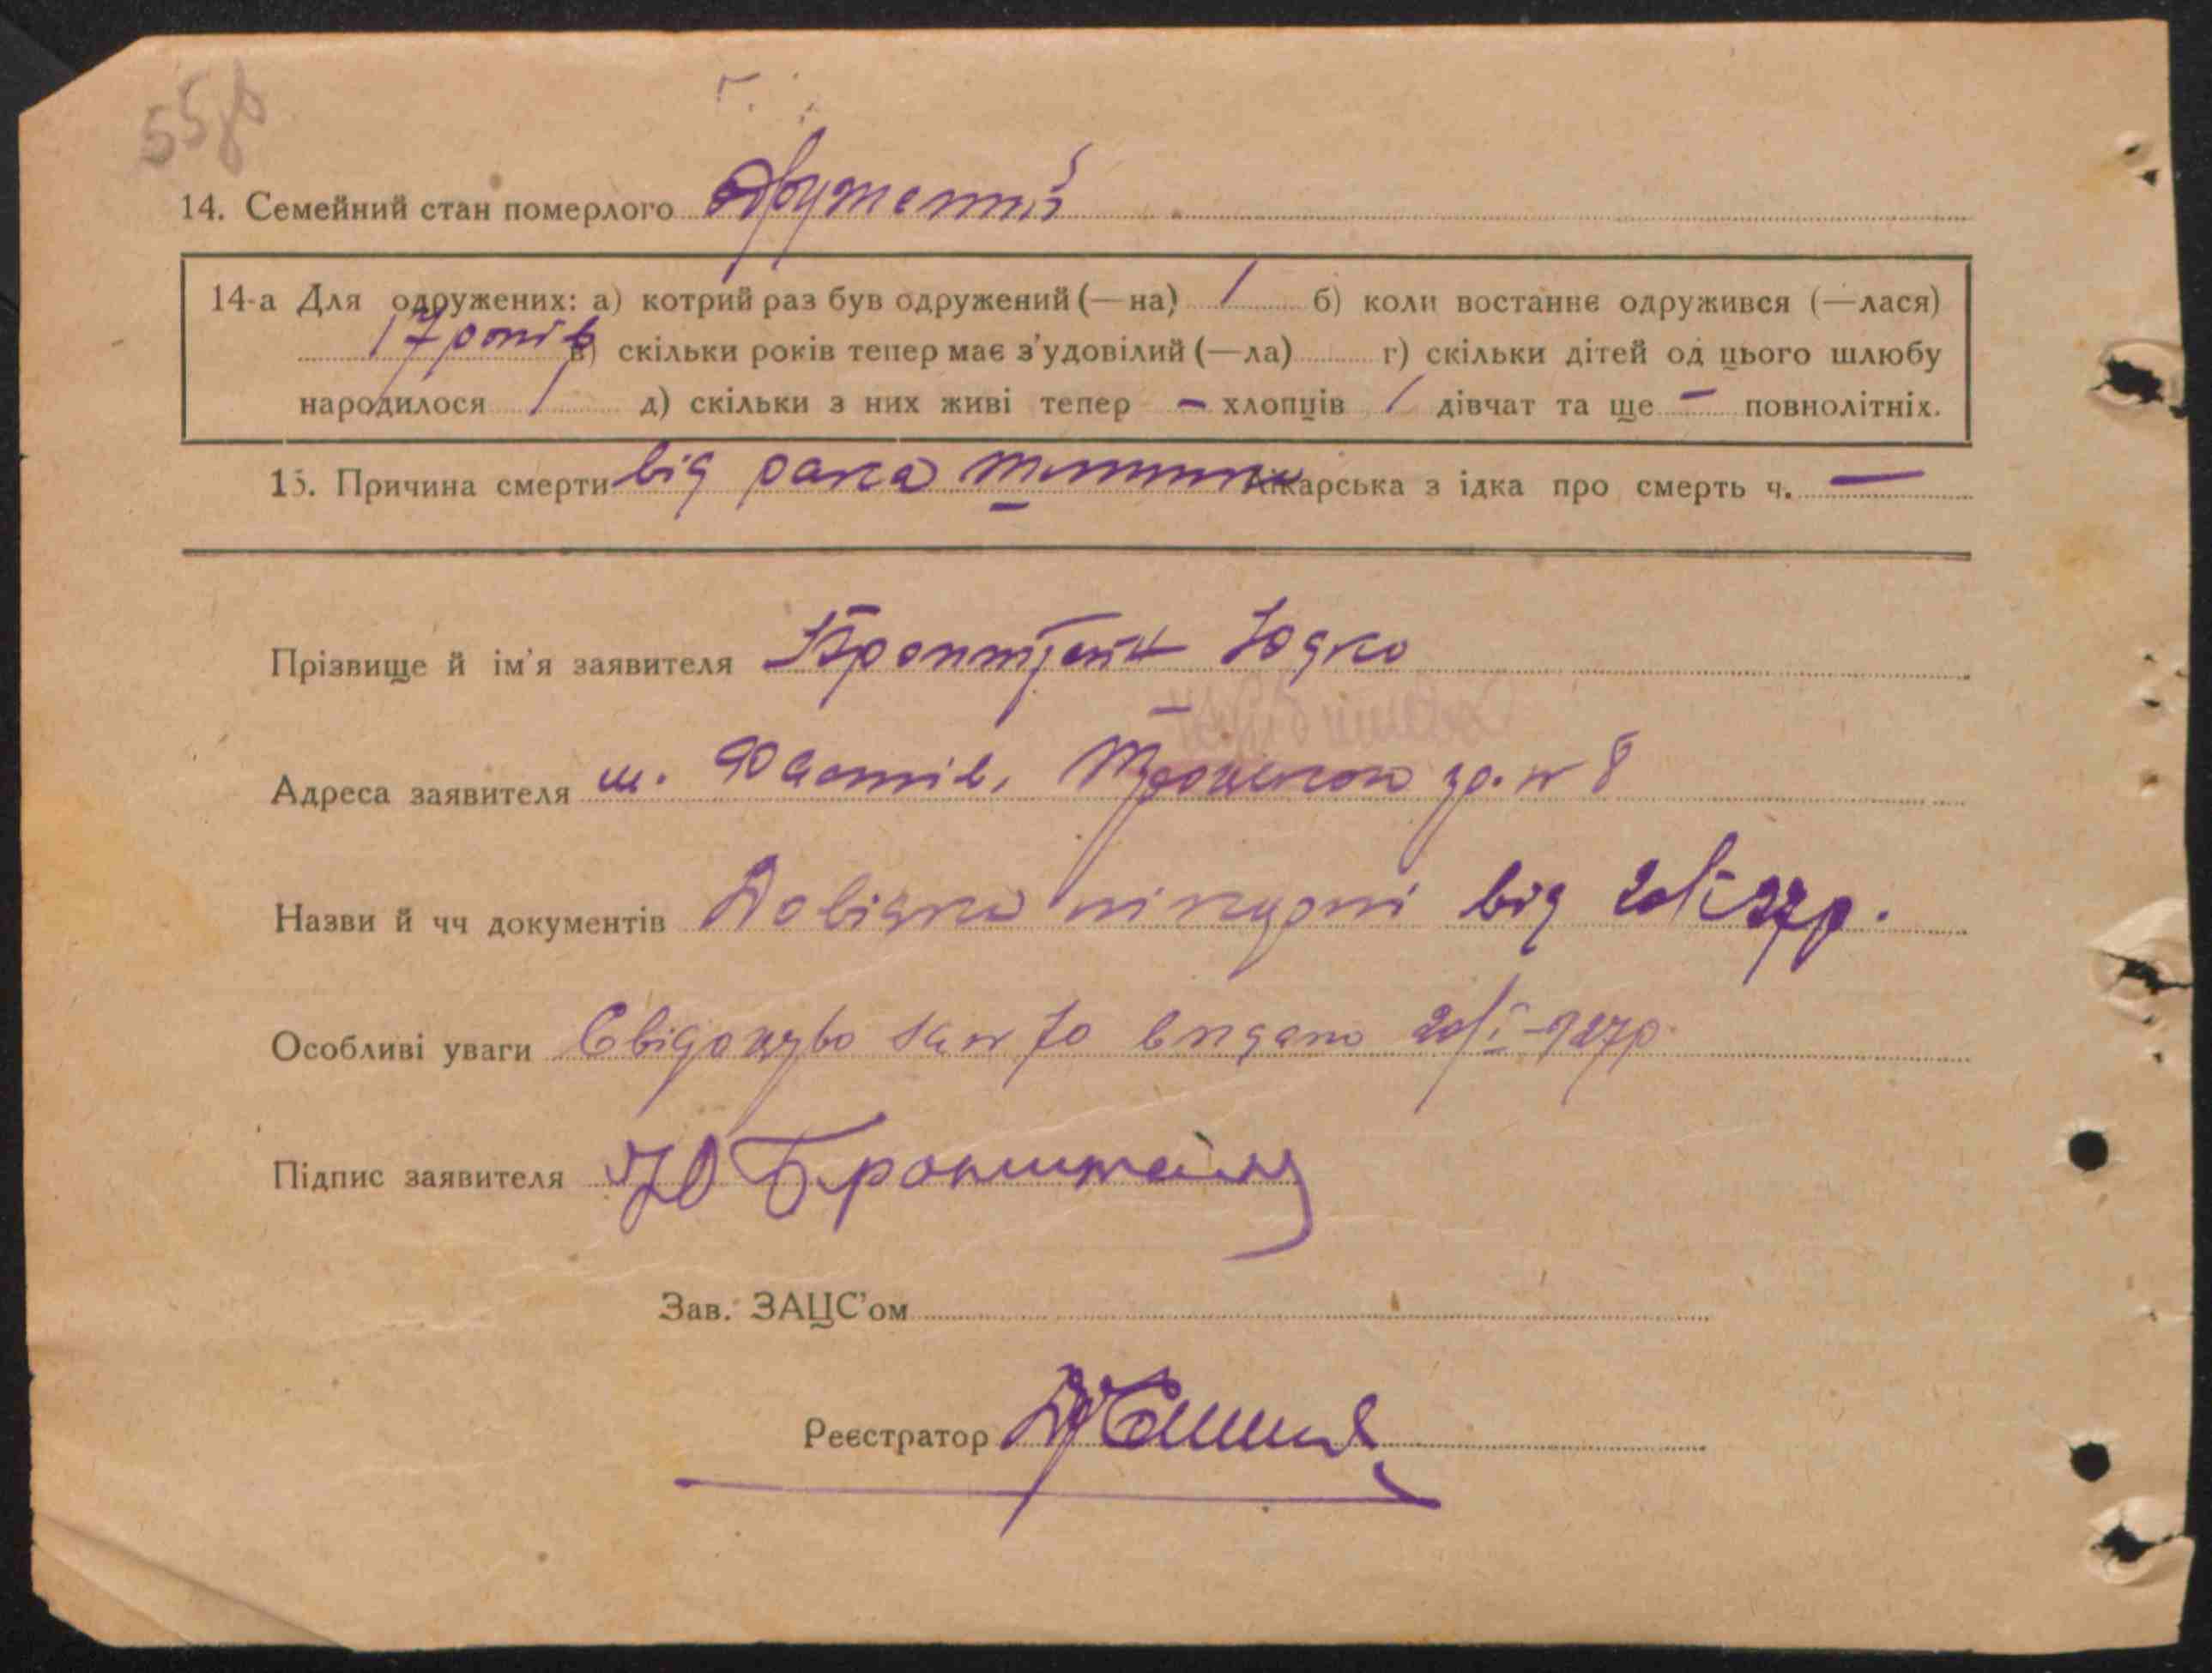 55
14. Семейний стан померлого одружений
14-а Для одружених: а) котрий раз був одружений (—на) 1 б) коли востаннє одружився (—лася)
17 років в) скільки років тепер має з'удовілий (—ла) г) скільки дітей од цього шлюбу
народилося 1 д) скільки з них живі тепер — хлопців 1 дівчат та ще — повнолітніх.
15. Причина смерти від рака Лікарська з ідка про смерть ч. —
Прізвище й ім'я заявителя Бронштейн Юдко
Адреса заявителя м. Фастів, Троцького № 8
Назви й чч документів Довідка лікарні від 20/I 27р.
Особливі уваги Свідоцтво за № 70 видано 20/I-927р.
Підпис заявителя Ю Бронштейн
Зав. ЗАЦС'ом
Реєстратор